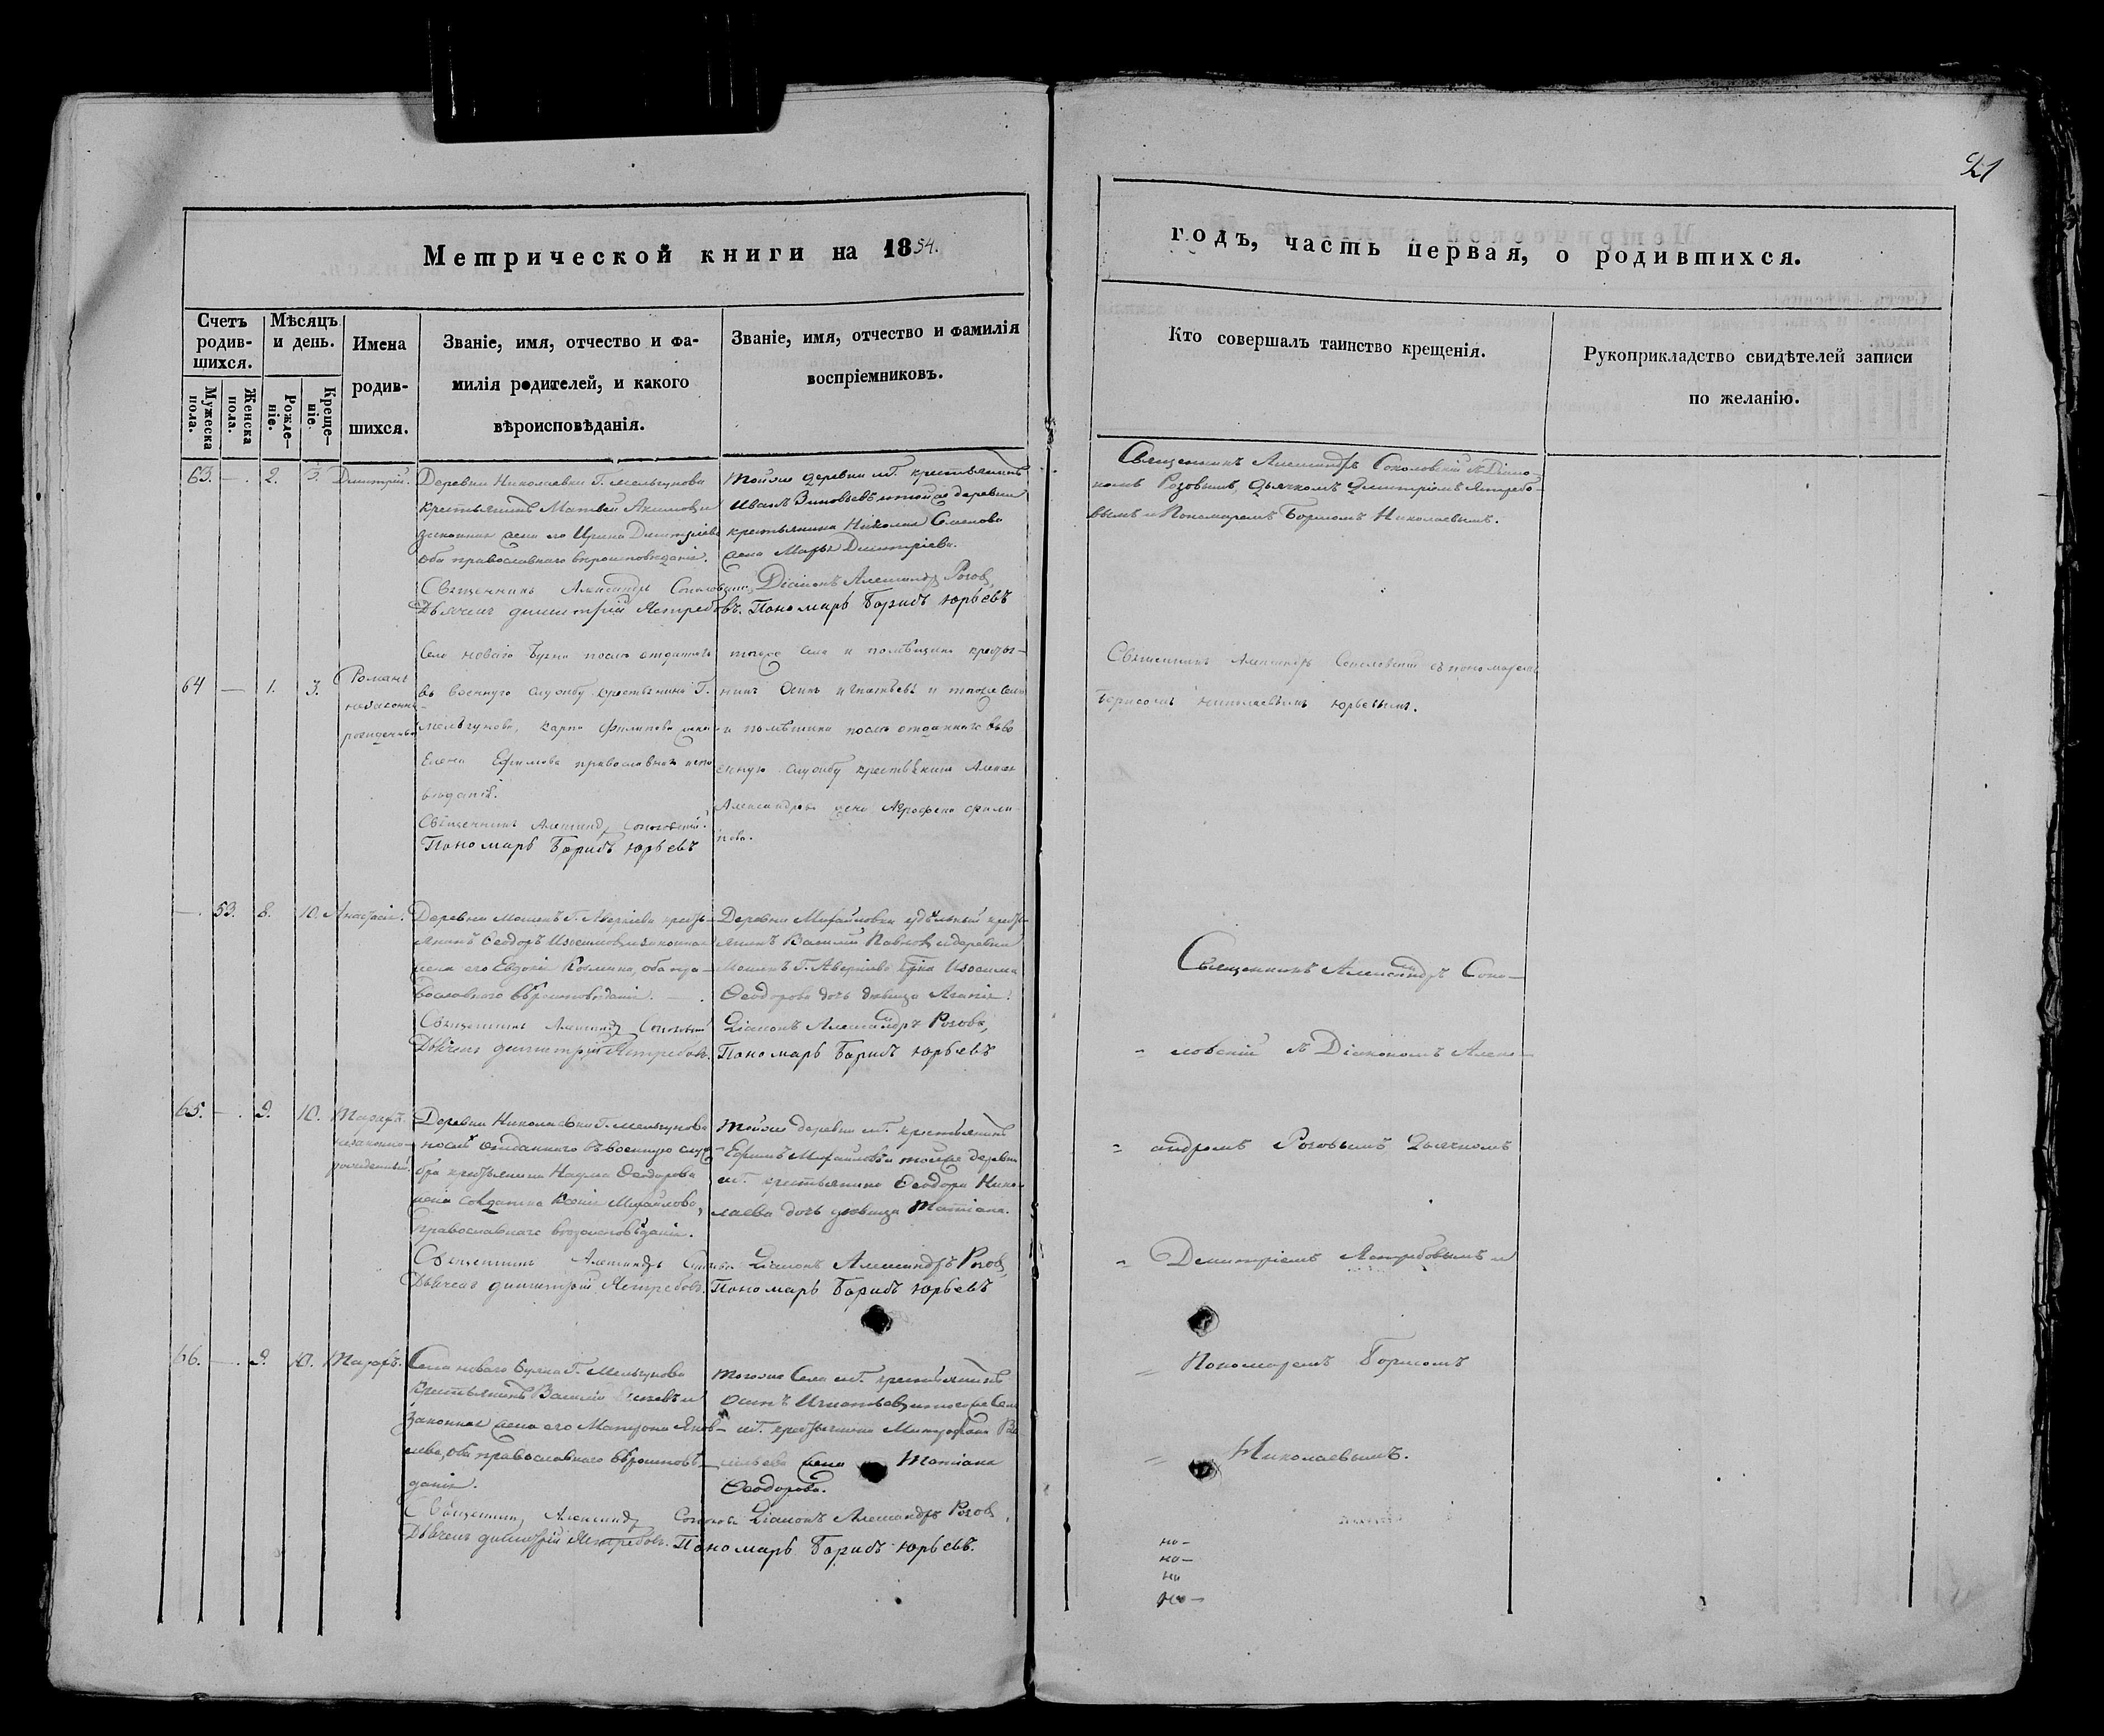 21
Метрической книги на 1854.
годъ, часть первая, о родившихся.
Счетъ родившихся.
Мужеска пола.
Женска пола.
Мѣсяцъ и день.
Рожденіе.
Крещеніе.
Имена
родив-
шихся.
Званіе, имя, отчество и фа-
милія родителей, и какого
вѣроисповѣданія.
Званіе, имя, отчество и фамилія
воспріемниковъ.
Кто совершалъ таинство крещенія.
Рукоприкладство свидѣтелей записи
по желанію.
63. — 2. 3. Димитрій.
Деревни Николаевки Г. Мельгунова
крестьянинъ Матвей Акимовъ и
законная жена его Ирина Димитріева
оба православнаго вѣроисповѣданія.
Священникъ Александръ Соколовскій,
Дьячекъ Димитрій Ястребовъ.
Тойже деревни ит. крестьянинъ
Иванъ Зиновьевъ и тойже деревни
крестьянина Николая
жена Марья Димитріева.
Діаконъ Александръ Розовъ,
Пономарь Борисъ Юрьевъ
Священникъ Александръ Соколовскій съ Діако-
номъ Розовымъ, Дьячкомъ Димитріемъ Ястребо-
вымъ и Пономаремъ Борисомъ Николаевымъ.
64 — 1. 3.
Романъ
незаконно
рожденный
Села новаго послѣ отданнаго
въ военную службу крестьянина Г.
Мельгунова, Карпа Филипова жена
Елена Ефимова православнаго испо
вѣданія.
Священникъ Александръ Соколовскій.
Пономарь Борисъ Юрьевъ
тогоже села и помѣщика кресть-
нинъ Осипъ Игнатьевъ и тогоже села
и помѣщика послѣ отданнаго въ во
енную службу крестьянина
Александрова жена Агрофена Фили
пова.
Священникъ Александръ Соколовскій съ пономаремъ
Борисомъ Николаевымъ Юрьевымъ.
— 53. 8. 10. Анастасія.
Деревни Г. Аверкіева кресть-
янинъ Ѳеодоръ Изосимовъ и законная
жена его Евдокія Козмина, оба пра-
вославнаго вѣроисповѣданія.
Священникъ Александръ Соколовскій
Дьячекъ Димитрій Ястребовъ.
Деревни Михайловки удѣльный кресть-
янинъ Василій Павловъ и деревни
Г. Аверкіева Изосима
Ѳеодорова дочь дѣвица
Діаконъ Александръ Розовъ,
Пономарь Борисъ Юрьевъ
Священникъ Александръ Соко-
= ловскій съ Діакономъ Алек-
= сандромъ Розовымъ Дьячкомъ
= Димитріемъ Ястребовымъ и
= Пономаремъ Борисомъ
= Николаевымъ.
65. — 9. 10.
Тарахъ
незаконно-
рожденный.
Деревни Николаевки Г. Мельгунова
послѣ отданнаго въ военную служ
бу крестьянина Наума Ѳеодорова
жена солдатка Ксенія Михайлова,
православнаго вѣроисповѣданія.
Священникъ Александръ
Дьячекъ Димитрій Ястребовъ.
Тойже деревни ит. крестьянинъ
Ефимъ Михайловъ и тойже деревни
ит. крестьянина Ѳеодора Нико-
лаева дочь дѣвица Татіана.
Діаконъ Александръ Розовъ,
Пономарь Борисъ Юрьевъ
66. — 9. 10. Тарахъ.
Села новаго Г. Мельгунова
крестьянинъ Василій и
Законная жена его Матрона Яков-
лева, оба православнаго вѣроисповѣ-
данія.
Священникъ Александръ
Дьячекъ Димитрій Ястребовъ.
Тогоже Села ит. крестьянинъ
Осипъ Игнатьевъ и тогоже Села
ит. крестьянина Митрофана Ва
сильева жена Татіана
Ѳеодорова.
Діаконъ Александръ Розовъ,
Пономарь Борисъ Юрьевъ.
но-
но-
но-